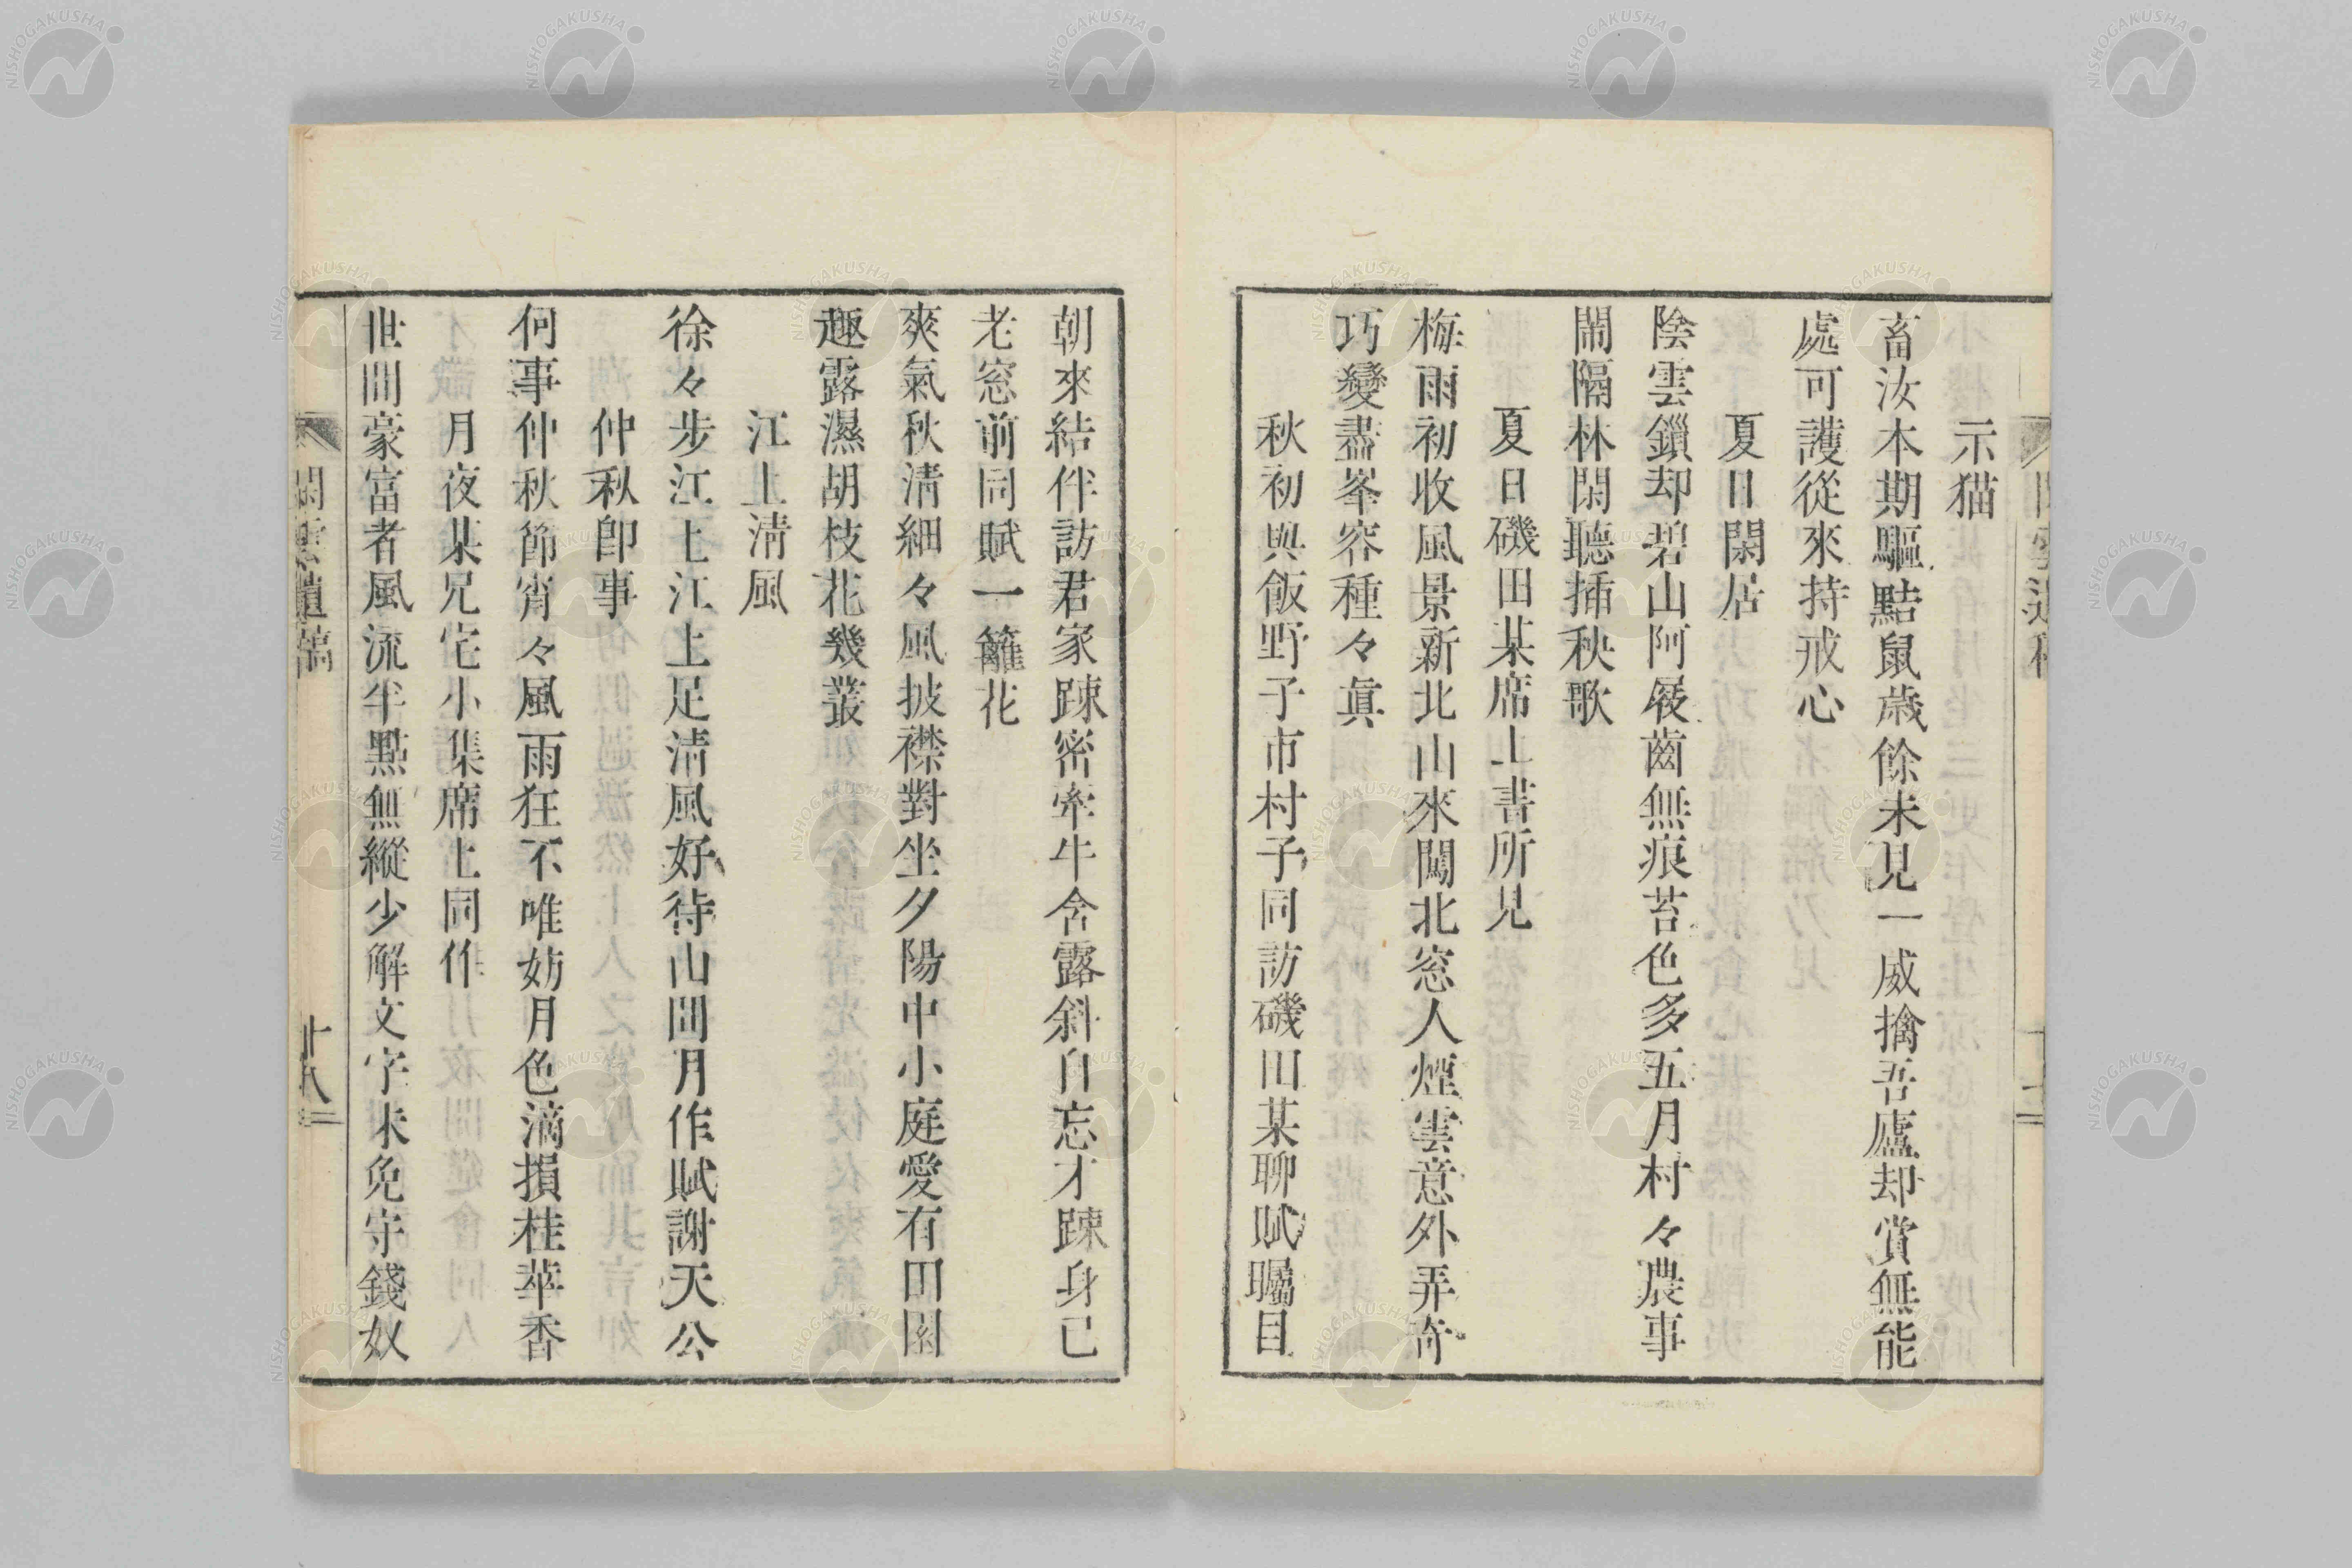 示猫
畜汝本期驅黠鼠歳餘未見一威擒吾廬却賞無能
處可護從來持戒心
夏日閑居
陰雲鎖却碧山阿屐齒無痕苔色多五月村々農事
閙隔林閑聽插秧歌
夏日磯田某席上書所見
梅雨初收風景新北山來闖北窓人煙雲意外弄奇
巧變盡峯容種々眞
秋初與飯野子市村子同訪磯田某聊賦矚目
朝來結伴訪君家踈密牽牛含露斜自忘才踈身已
老窓前同賦一籬花
爽氣秋淸細々風披襟對坐夕陽中小庭愛有田園
趣露濕胡枝花幾叢
江上淸風
徐々步江上江上足淸風好待山間月作賦謝天公
仲秋卽事
何事仲秋節宵々風雨狂不唯妨月色滴損桂華香
月夜某兄宅小集席上同作
世間豪富者風流半點無縱少解文字未免守錢奴
閑雲遺稿
十八
NISHOGAKUSHA